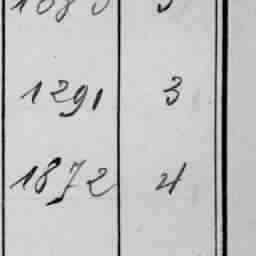 1291 3
1872 4